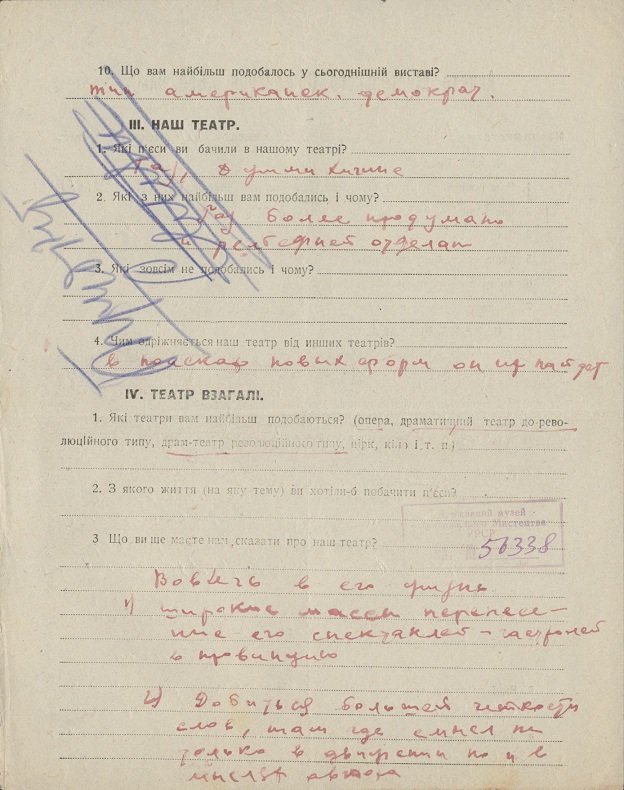 10. Що вам найбільш подобалось у сьогоднішній виставі?
тип американск. демократ.
III. НАШ ТЕАТР.
1. Які п'єси ви бачили в нашому театрі?
Газ, Джимми Хиггинс
2. Які з них найбільш вам подобались і чому?
Газ более продумано
и рельефней отделан
3. Які зовсім не подобались і чому?
4. Чим одріжняється наш театр від инших театрів?
в поисках новых форм он их найдет
IV. ТЕАТР ВЗАГАЛІ.
1. Які театри вам найбільш подобаються? (опера, драматичний театр до-рево-
люційного типу, драм-театр революційного типу, цірк, кіно і т. п.)
2. З якого життя (на яку тему) ви хотіли-б побачити п'єси?
музей
Мистецтва
УРСР
50338
3 Що ви ще маєте нам сказати про наш театр?
Вовлечь в его жизнь
1) широкие массы перенесе-
ние его спектаклей – гастролей
в провинцию
2) Добиться большей четкости
слов, там где смысл не
только в движении но и в
мыслях автора